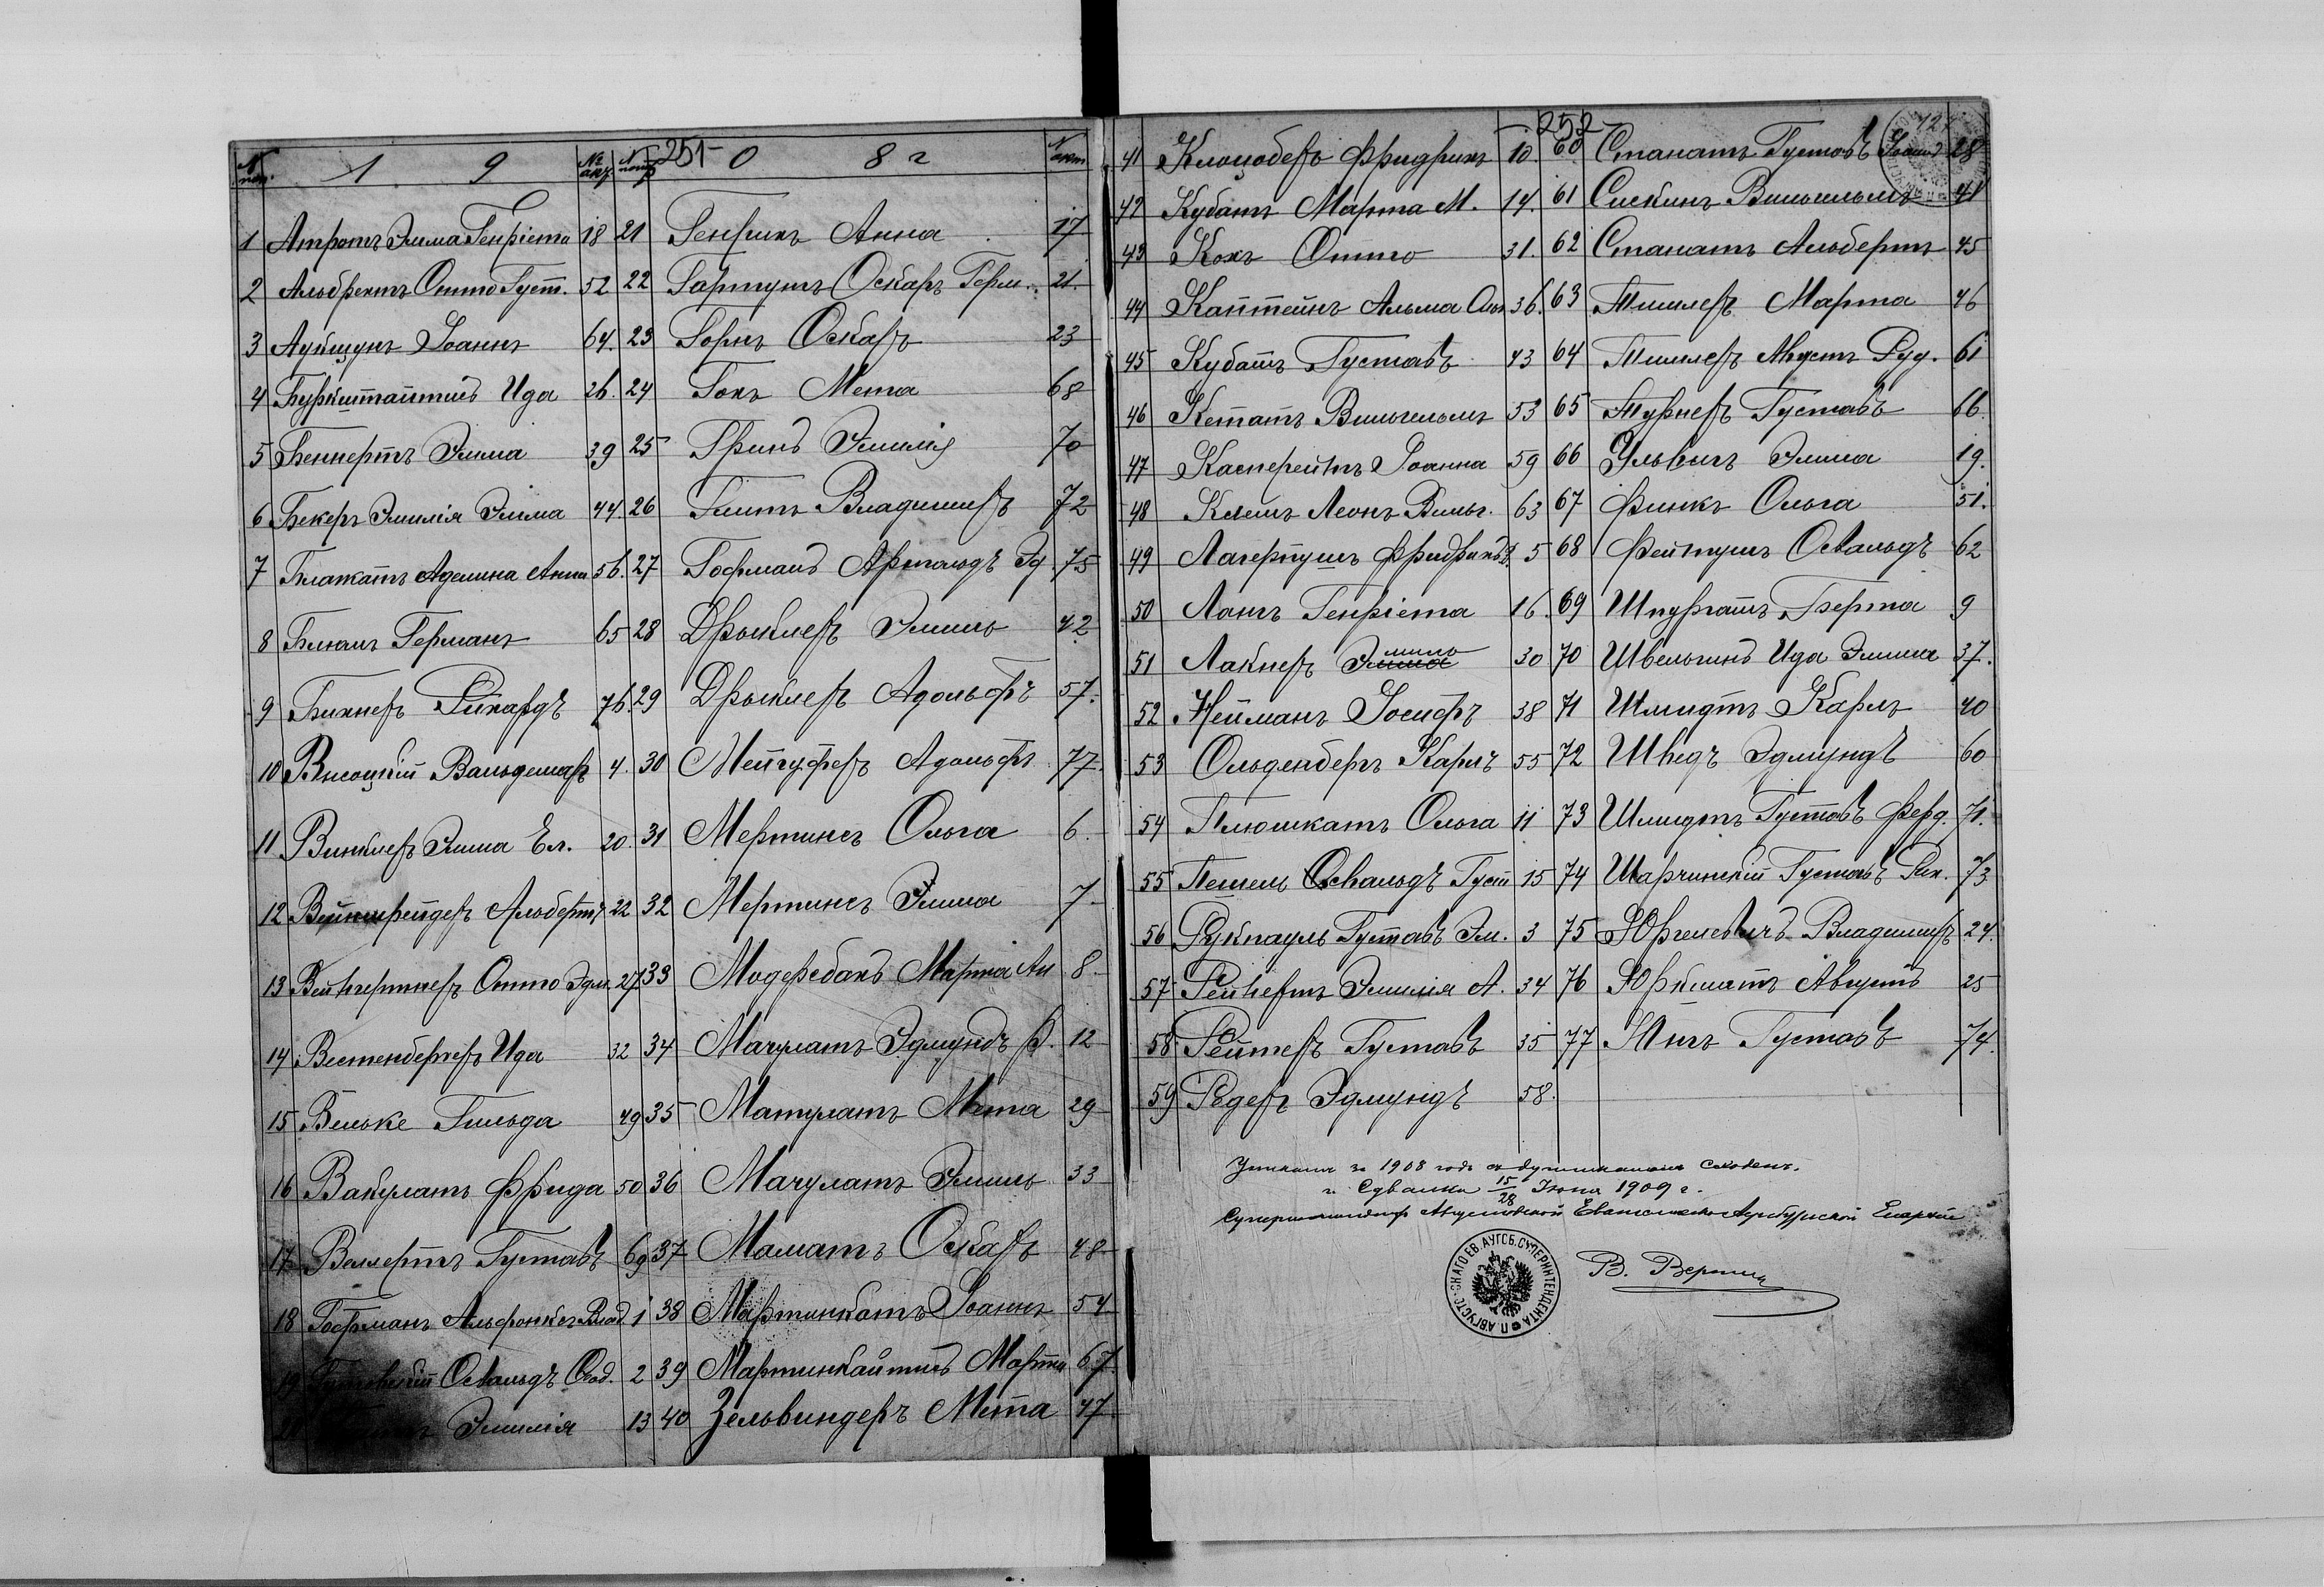 251
N пор. 1 9 № акт N пор 0 8 г N акт
1 Атротъ Эмма Генріета 18
2 Альбрехтъ Отто Густ. 52
3 Аукщунъ Іоаннъ 64.
4 Буркштайтисъ Ида 26.
5 Беннертъ Эмма 39
6 Бекеръ Эмилія Эмма 44.
7 Блажатъ Аделина Анна 56.
8 Блюмъ Германъ 65
9 Бихнеръ Рихардъ 76.
10 Высоцкій Вальдемаръ 4.
11 Винклеръ Эмма Ел. 20.
12 Альбертъ 22
13 Вейнгертнеръ Отто Эдм. 27
14 Вестенбергеръ Ида 32
15 Вельке Гильда 49
16 Вакулатъ Фрида 50
17 Веллертъ Густавъ 69
18 Гофманъ Альфонсъ Влад 1
Освальдъ 2
Эмилія 13
21 Генрихъ Анна 17
22 Гартунгъ Оскаръ Герм. 21.
23 Горнъ Оскаръ 23
24 Гохъ Мета 68
25 Гринъ Эмилія 70
26 Владиміръ 72
27 Гофманъ Артольдъ Эд 75
28 Дрыклеръ Эмиль 42
29 Дрыклеръ Адольфъ 57.
30 Мейгуферъ Адольфъ 77.
31 Мертинсъ Ольга 6.
32 Мертинсъ Эмма 7
33 Модерсбахъ Марта Ан 8
34 Мачулатъ Эдмундъ Ф. 12
35 Матулатъ Мета 29
36 Мачулатъ Эмиль 33
37 Маматъ Оскаръ 48
38 Мартинкатъ Іоаннъ 54
39 Мартинкайтисъ Марта 67.
40 Зельвиндеръ Мета 47
252
41 Клоцоберъ Фридрихъ 10.
42 Кубатъ Марта М. 14.
43 Кохъ Отто 31.
44 Капштейнъ Альма Ольг 36.
45 Кубатъ Густавъ 43
46 Кетатъ Вильгельмъ 53
47 Касперейтъ Іоанна 59
48 Клемъ Леонъ Вильг. 63
49 Лагерпушъ Фридрихъ 5
50 Латъ Генріета 16.
51 Лакнеръ Эмиль 30
52 Нейманъ Іосифъ 38
53 Ольденбергъ Карлъ 55
54 Плюшкатъ Ольга 11
55 Пешель Освальдъ Густ 15
56 Рукпауль Густавъ Эм. 3
57 Рейнертъ Эмилія А. 34
58 Рейтеръ Густавъ 35
59 Редеръ Эдмундъ 58.
60 Станатъ Густавъ 28
61 Сискинъ Вильгельмъ 41
62 Станатъ Альбертъ 45
63 Тиллеръ Марта 46
64 Тиллеръ Августъ Руд. 61
65 Турнеръ Густавъ 66.
66 Ульбинъ Эмма 19.
67 Финкъ Ольга 51.
68 Фейтушъ Освальдъ 62
69 Шпургатъ Берта 9
70 Швельгинъ Ида Эмма 37.
71 Шмидтъ Карлъ 40
72 Шведъ Эдмундъ 60
73 Шмидтъ Густавъ Ферд. 71.
74 Шарчинскій Густавъ Рих. 73
75 Юргелевичъ Владиміръ 24.
76 Юркшатъ Августъ 25
77 Янъ Густавъ 74.
Уникатъ за 1908 годъ съ дупликатомъ сходенъ.
г. Сувалки 15/28 Іюня 1909 г.
Суперинтендентъ Августовской Евангелическо-Аугсбургской Епархіи
АВГУСТ. СКАГО ЕВ. АУГСБ. СУПЕРИНТЕНДЕНТА П.